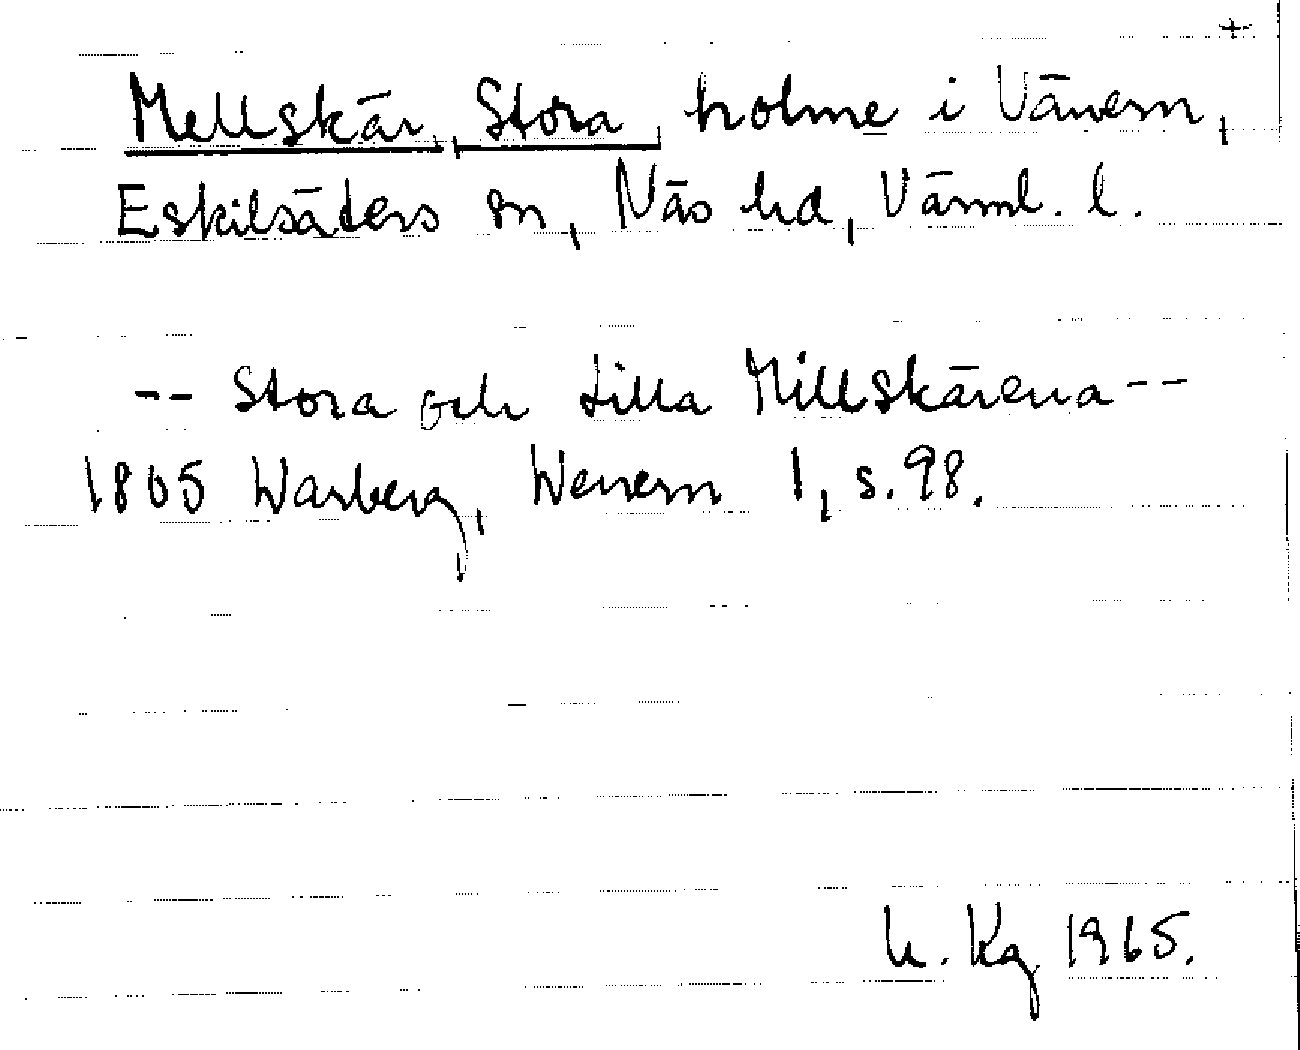 +
Mellskär, Stora, holme i Vänern,
Eskilsäters sn, Näs hd, Värml. l.
-- Stora och Lilla Millskärena --
1805 Warberg, Wenern 1, s. 98.
Kg 1965.